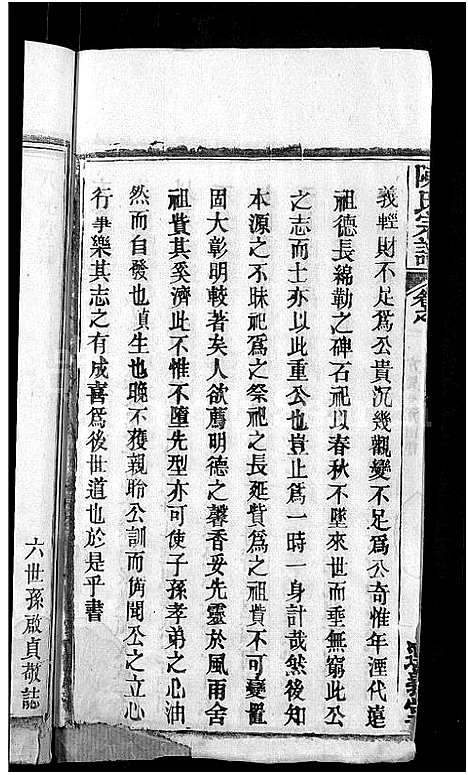 陳氏宗譜
義輕財不足為公貴沉幾觀變不足為公奇惟年湮代遠
祖德長綿勒之碑石祀以春秋不墜來世而垂無窮此公
之志而士亦以此重公也豈止為一時一身計哉然後知
本源之不昧祀為之祭祀之長延貲為之祖貲不可變置
固大彰明較著矣人欲薦明德之馨香妥先靈於風雨舍
祖貲其奚濟此不惟不墮先型亦可使子孫孝弟之心油
然而自發也貞生也晚不獲親聆公訓而偹聞公之立心
行事樂其志之有成喜為後世道也於是乎書
六世孫啟貞敬誌